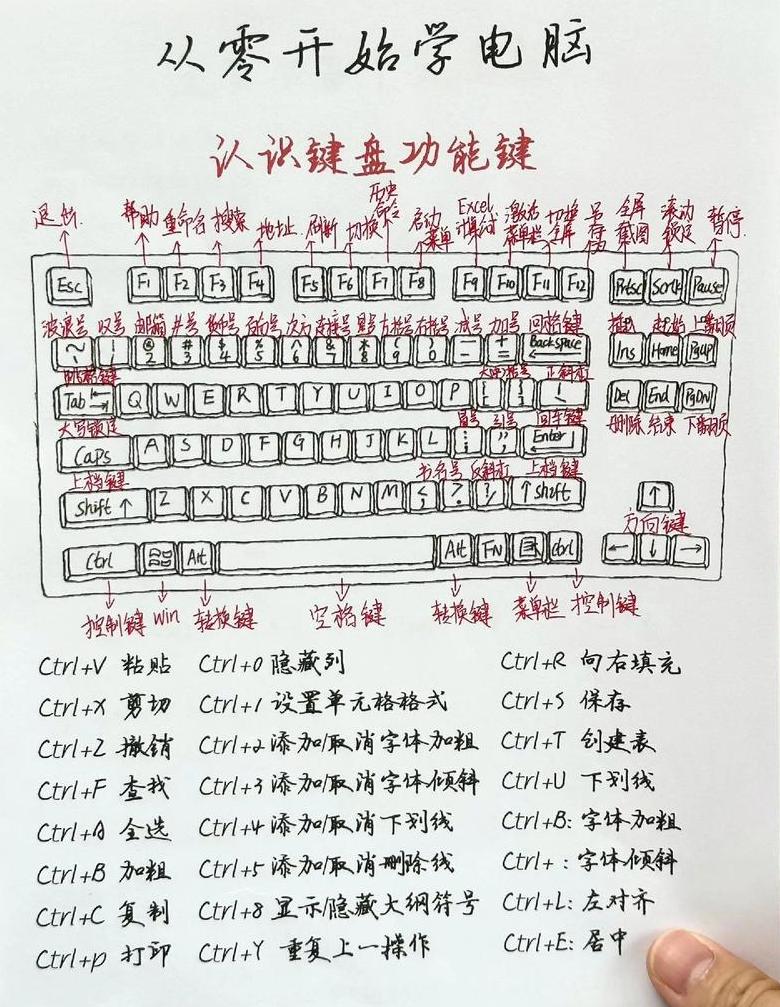 从零开始学电脑
认识键盘功能键
退出 帮助 重命名 搜索 地址 刷新 切换 历史命令 启动菜单 Excel计算式 激活菜单栏 切换全屏 另存为 全屏截图 滚动锁定 暂停
Esc F1 F2 F3 F4 F5 F6 F7 F8 F9 F10 F11 F12 Prtsc Scrk Pause
波浪号 叹号 邮箱 #号 百分号 次方 连接号 星号 左括号 右括号 减号 加号 回格键 插入 起始 上翻页
~ ! @ 2 # 3 $ 4 % 5 ^ 6 & 7 * 8 ( 9 ) 0 — - + = Backspace Ins Home PgUp
跳格键 大中括号 正斜杠
Tab Q W E R T Y U I O P Del End PgDn
大写锁定 冒号 引号 回车键 删除 结束 下翻页
Caps A S D F G H J K L Enter
上档键 书名号 反斜杠 上档键
Shift ↑ Z X C V B N M ↑ Shift ↑
方向键
Ctrl Alt Alt FN Ctrl ← ↓ →
控制键 win 转换键 空格键 转换键 菜单栏 控制键
Ctrl+V 粘贴 Ctrl+0 隐藏列 Ctrl+R 向右填充
Ctrl+X 剪切 Ctrl+1 设置单元格格式 Ctrl+S 保存
Ctrl+Z 撤销 Ctrl+2 添加/取消字体加粗 Ctrl+T 创建表
Ctrl+F 查找 Ctrl+3 添加/取消字体倾斜 Ctrl+U 下划线
Ctrl+A 全选 Ctrl+4 添加/取消下划线 Ctrl+B: 字体加粗
Ctrl+B 加粗 Ctrl+5 添加/取消删除线 Ctrl+ : 字体倾斜
Ctrl+C 复制 Ctrl+8 显示/隐藏大纲符号 Ctrl+L: 左对齐
Ctrl+p 打印 Ctrl+Y 重复上一操作 Ctrl+E: 居中